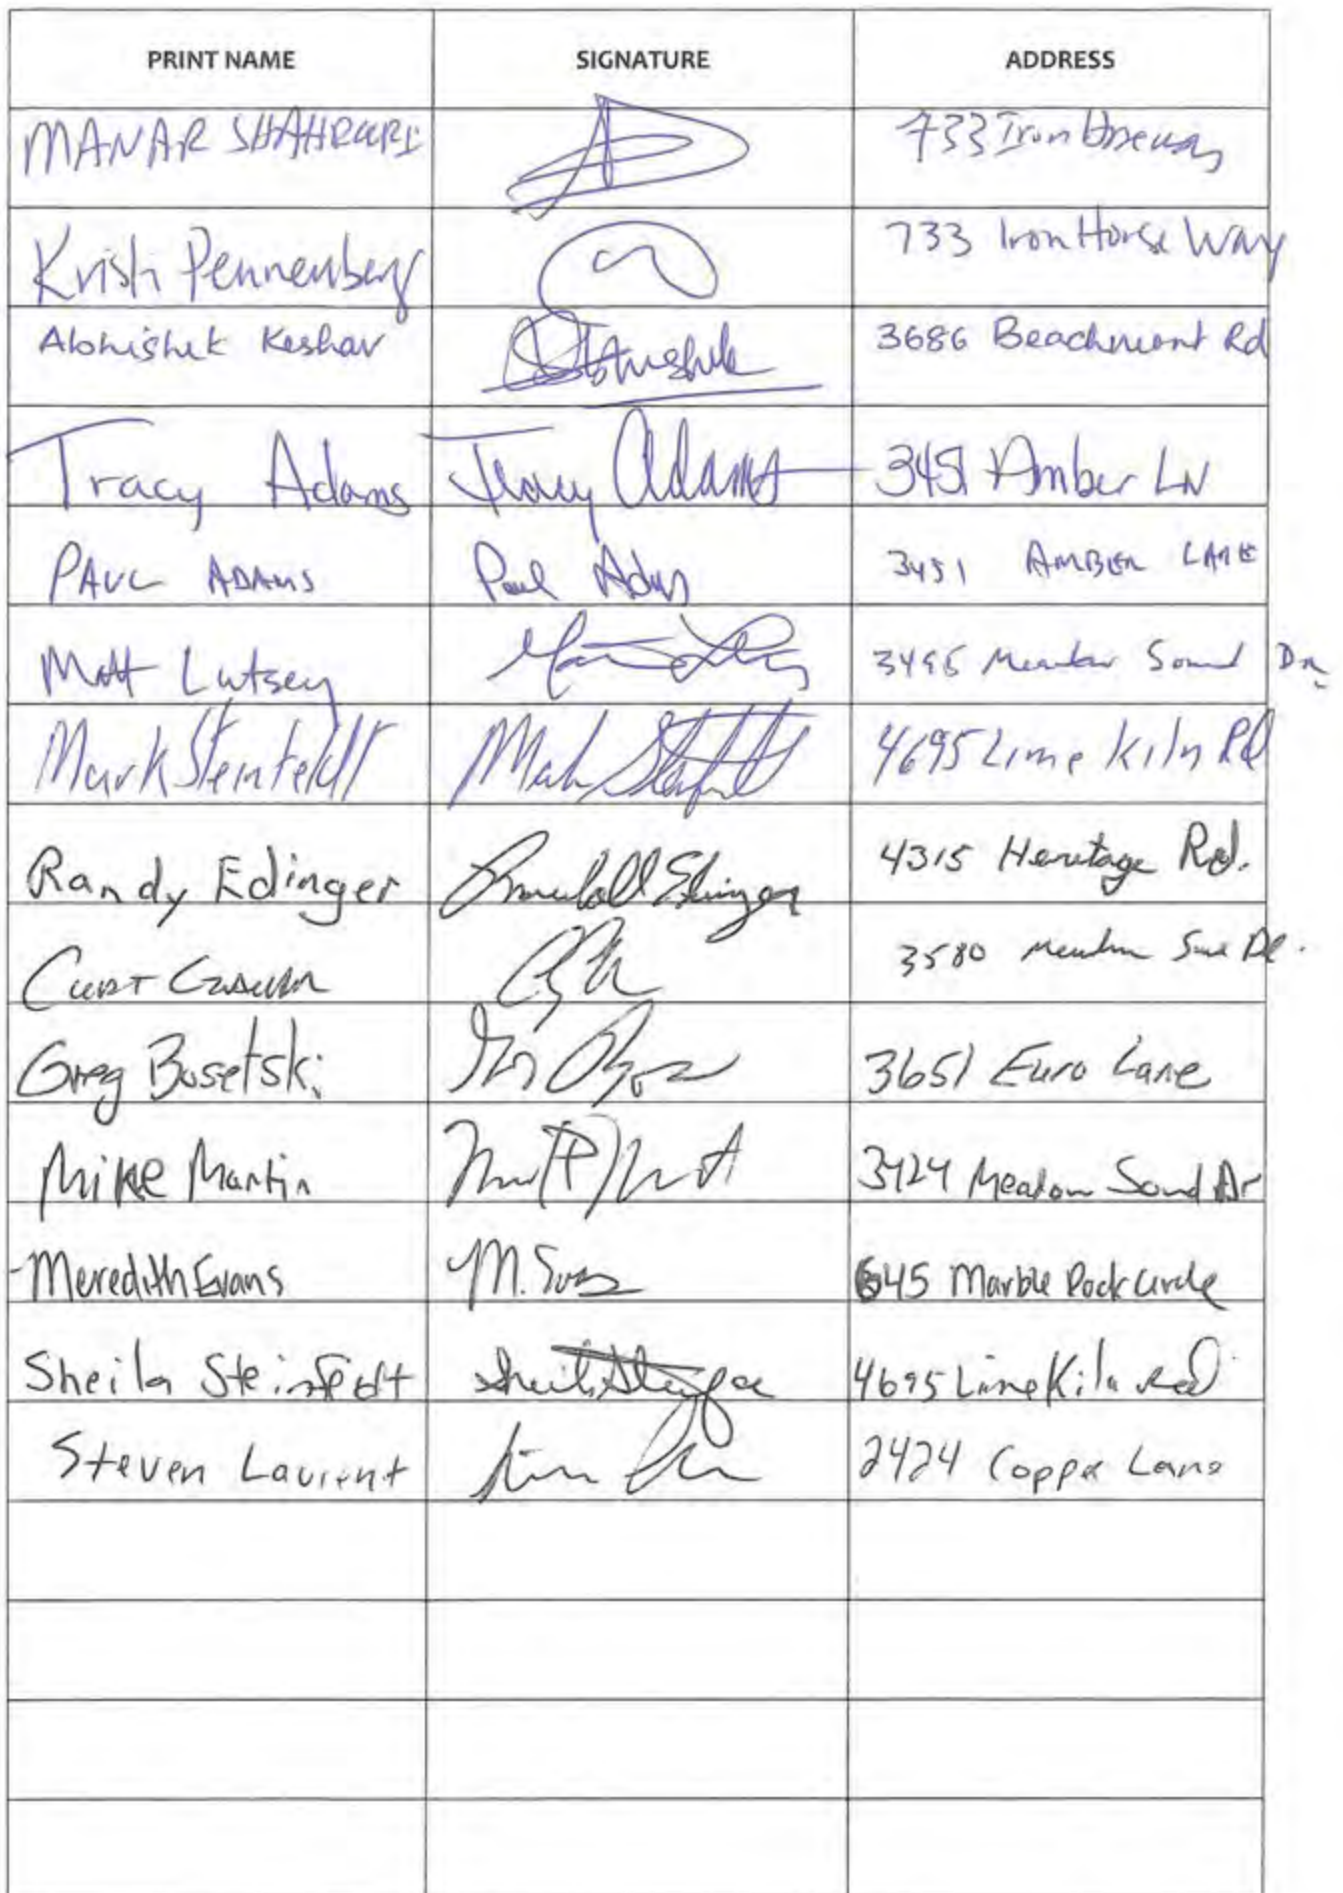 PRINT NAME SIGNATURE ADDRESS
MANAR SHAHROURI 733 Iron Horse way
Krish Pennenberg 733 Iron Horse Way
Abhishek Keshav Abhishek 3686 Beachmont Rd
Tracy Adams Tracy Adams 3451 Amber LN
PAUL ADAMS Paul Adams 3451 AMBER LANE
Matt Lutsey 3495 Meadow Sound Dr.
Mark Steinfeldt Mark Steinfeldt 4695 Lime Kiln Rd
Randy Edinger Randall Edinger 4315 Heritage Rd.
CURT 3580 Meadow Sound Dr.
Greg Bosetski 3651 Euro Lane
Mike Martin 3424 Meadow Sound Dr
Meredith Evans M. Evans 645 Marble Rock Circle
Sheila Steinfeldt Sheila Steinfe 4695 Lime Kiln Rd
Steven Laurent 2424 Copper Lane